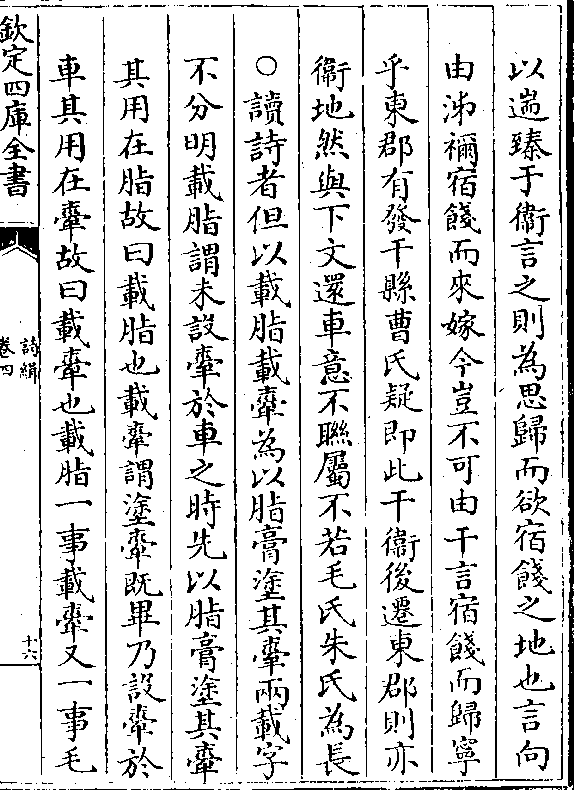 以遄臻于衞言之則為思歸而欲宿餞之地也言向
由泲禰宿餞而來嫁今豈不可由干言宿餞而歸寧
乎東郡有發干縣曹氏疑即此干衞後遷東郡則亦
衞地然與下文還車意不聯屬不若毛氏朱氏為長
○讀詩者但以載脂載舝為以脂膏塗其舝兩載字
不分明載脂謂未設舝於車之時先以脂膏塗其舝
其用在脂故曰載脂也載舝謂塗舝既畢乃設舝於
車其用在舝故曰載舝也載脂一事載舝又一事毛
欽定四庫全書
詩緝
卷四
十六